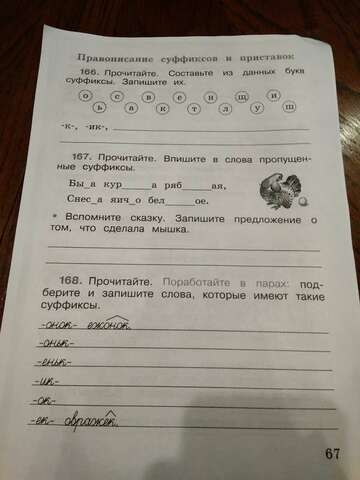 Правописание суффиксов и приставок
166. Прочитайте. Составьте из данных букв
суффиксы. Запишите их.
о с в е н щ и
ь а к т л у ш
-к-, -ик-,
167. Прочитайте. Впишите в слова пропущен-
ные суффиксы.
Бы_а кур_____а ряб____ая,
Снес_а яич_о бел____ое.
* Вспомните сказку. Запишите предложение о
том, что сделала мышка.
168. Прочитайте. Поработайте в парах: под-
берите и запишите слова, которые имеют такие
суффиксы.
-онок- ежонок.
-оньк-
-еньк-
-ик-
-ок-
-ек- овражек.
67